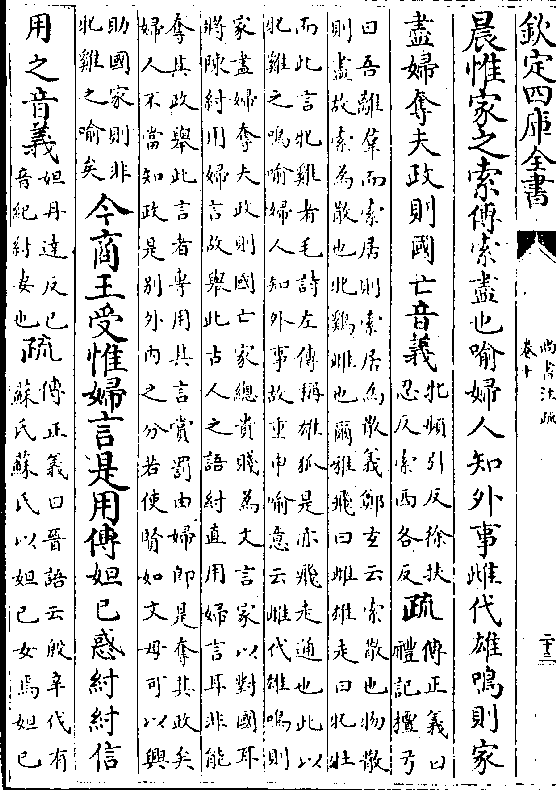 欽定四庫全書
尚書注疏
卷十
二十三
晨惟家之索傳索盡也喻婦人知外事雌代雄鳴則家
盡婦奪夫政則國亡音義
牝頻引反徐扶
忍反索西各反
疏
傳正義曰
禮記檀弓
曰吾離羣而索居則索居為散義鄭玄云索散也物散
則盡故索為散也牝雞雌也爾雅飛曰雌雄走曰牝牡
而此言牝雞者毛詩左傳稱雄狐是亦飛走通也此以
牝雞之鳴喻婦人知外事故重申喻意云雌代雄鳴則
家盡婦奪夫政則國亡家總貴賤為文言家以對國耳
將陳紂用婦言故舉此古人之語紂直用婦言耳非能
奪其政舉此言者專用其言賞罰由婦即是奪其政矣
婦人不當知政是別外內之分若使賢如文母可以興
助國家則非
牝雞之喻矣
今商王受惟婦言是用傳妲己惑紂紂信
用之音義
妲丹達反己
音紀紂妻也
疏
傳正義曰晉語云殷辛代有
蘇氏蘇氏以妲己女焉妲己